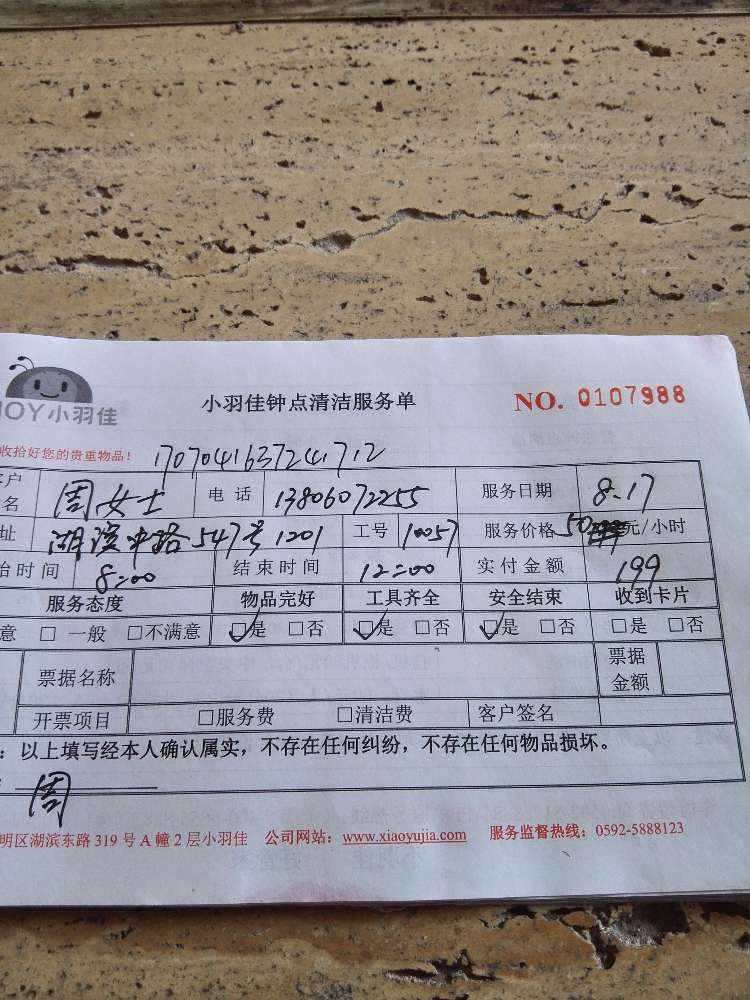 JOY小羽佳 小羽佳钟点清洁服务单 NO. 0107988
收拾好您的贵重物品! 1707041637241712
客户 名 周女士 电 话 13806072255 服务日期 8.17
址 湖滨中路547号1201 工号 10057 服务价格 50 元/小时
始时间 8:00 结束时间 12:00 实付金额 199
服务态度 物品完好 工具齐全 安全结束 收到卡片
意 □ 一般 □不满意 ☑是 □否 ☑是 □否 ☑是 □否 □是 □否
票据名称 票据金额
开票项目 □服务费 □清洁费 客户签名
：以上填写经本人确认属实，不存在任何纠纷，不存在任何物品损坏。
周
明区湖滨东路 319 号 A 幢 2 层小羽佳 公司网站：www.xiaoyujia.com 服务监督热线：0592-5888123